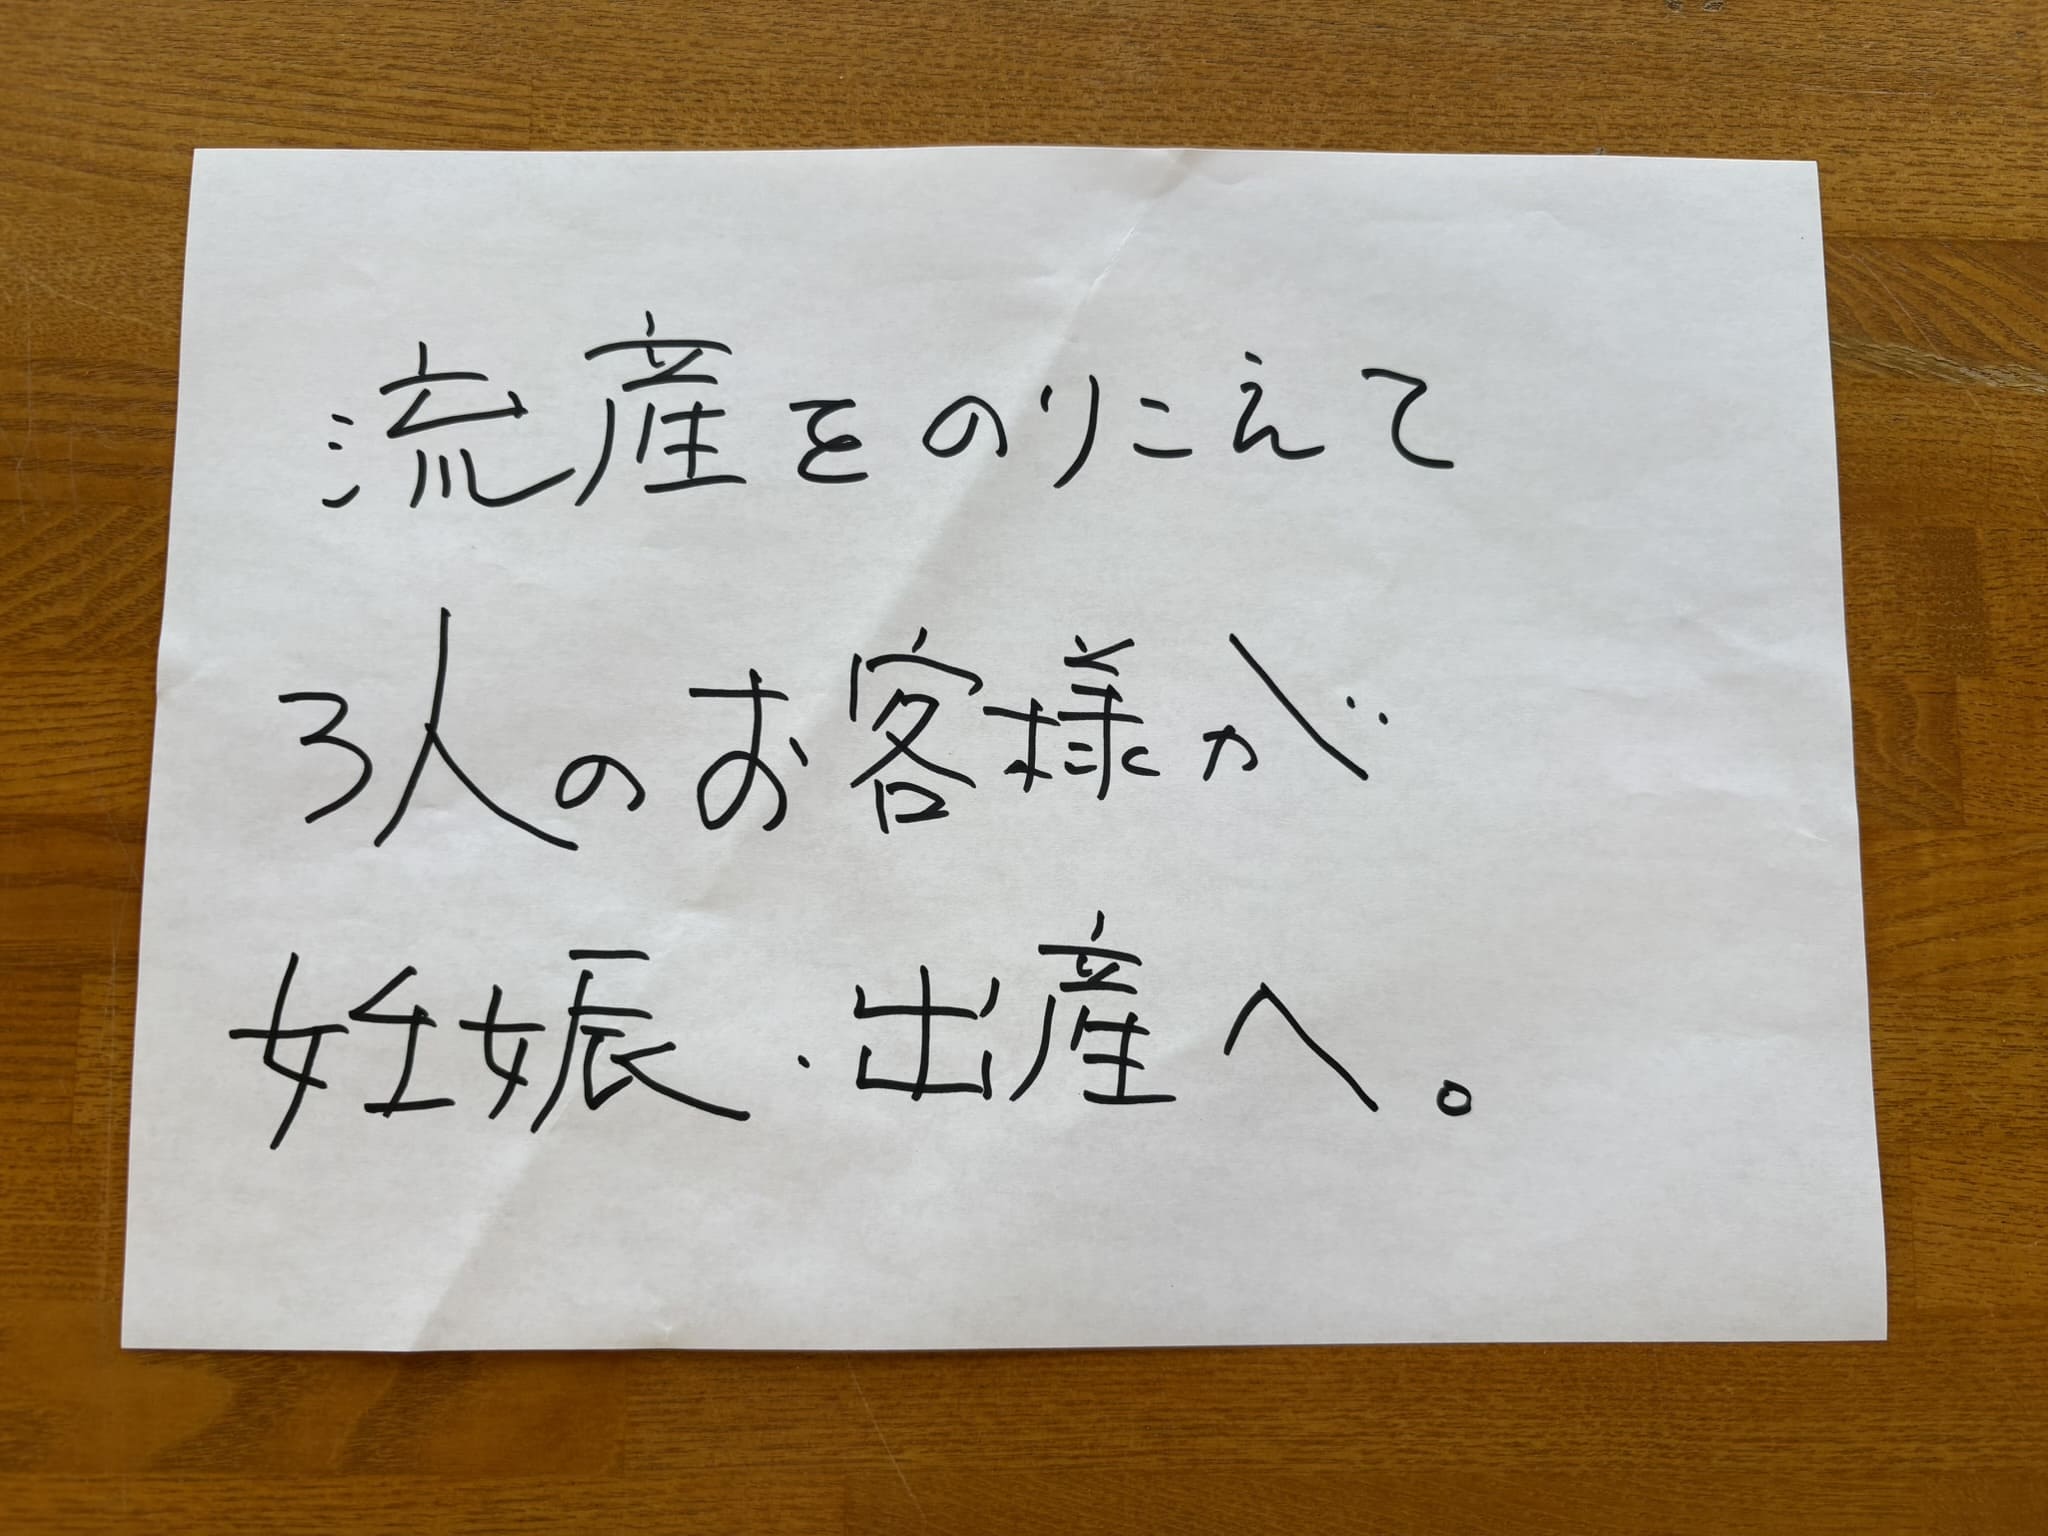 流産をのりこえて
3人のお客様が
妊娠・出産へ。